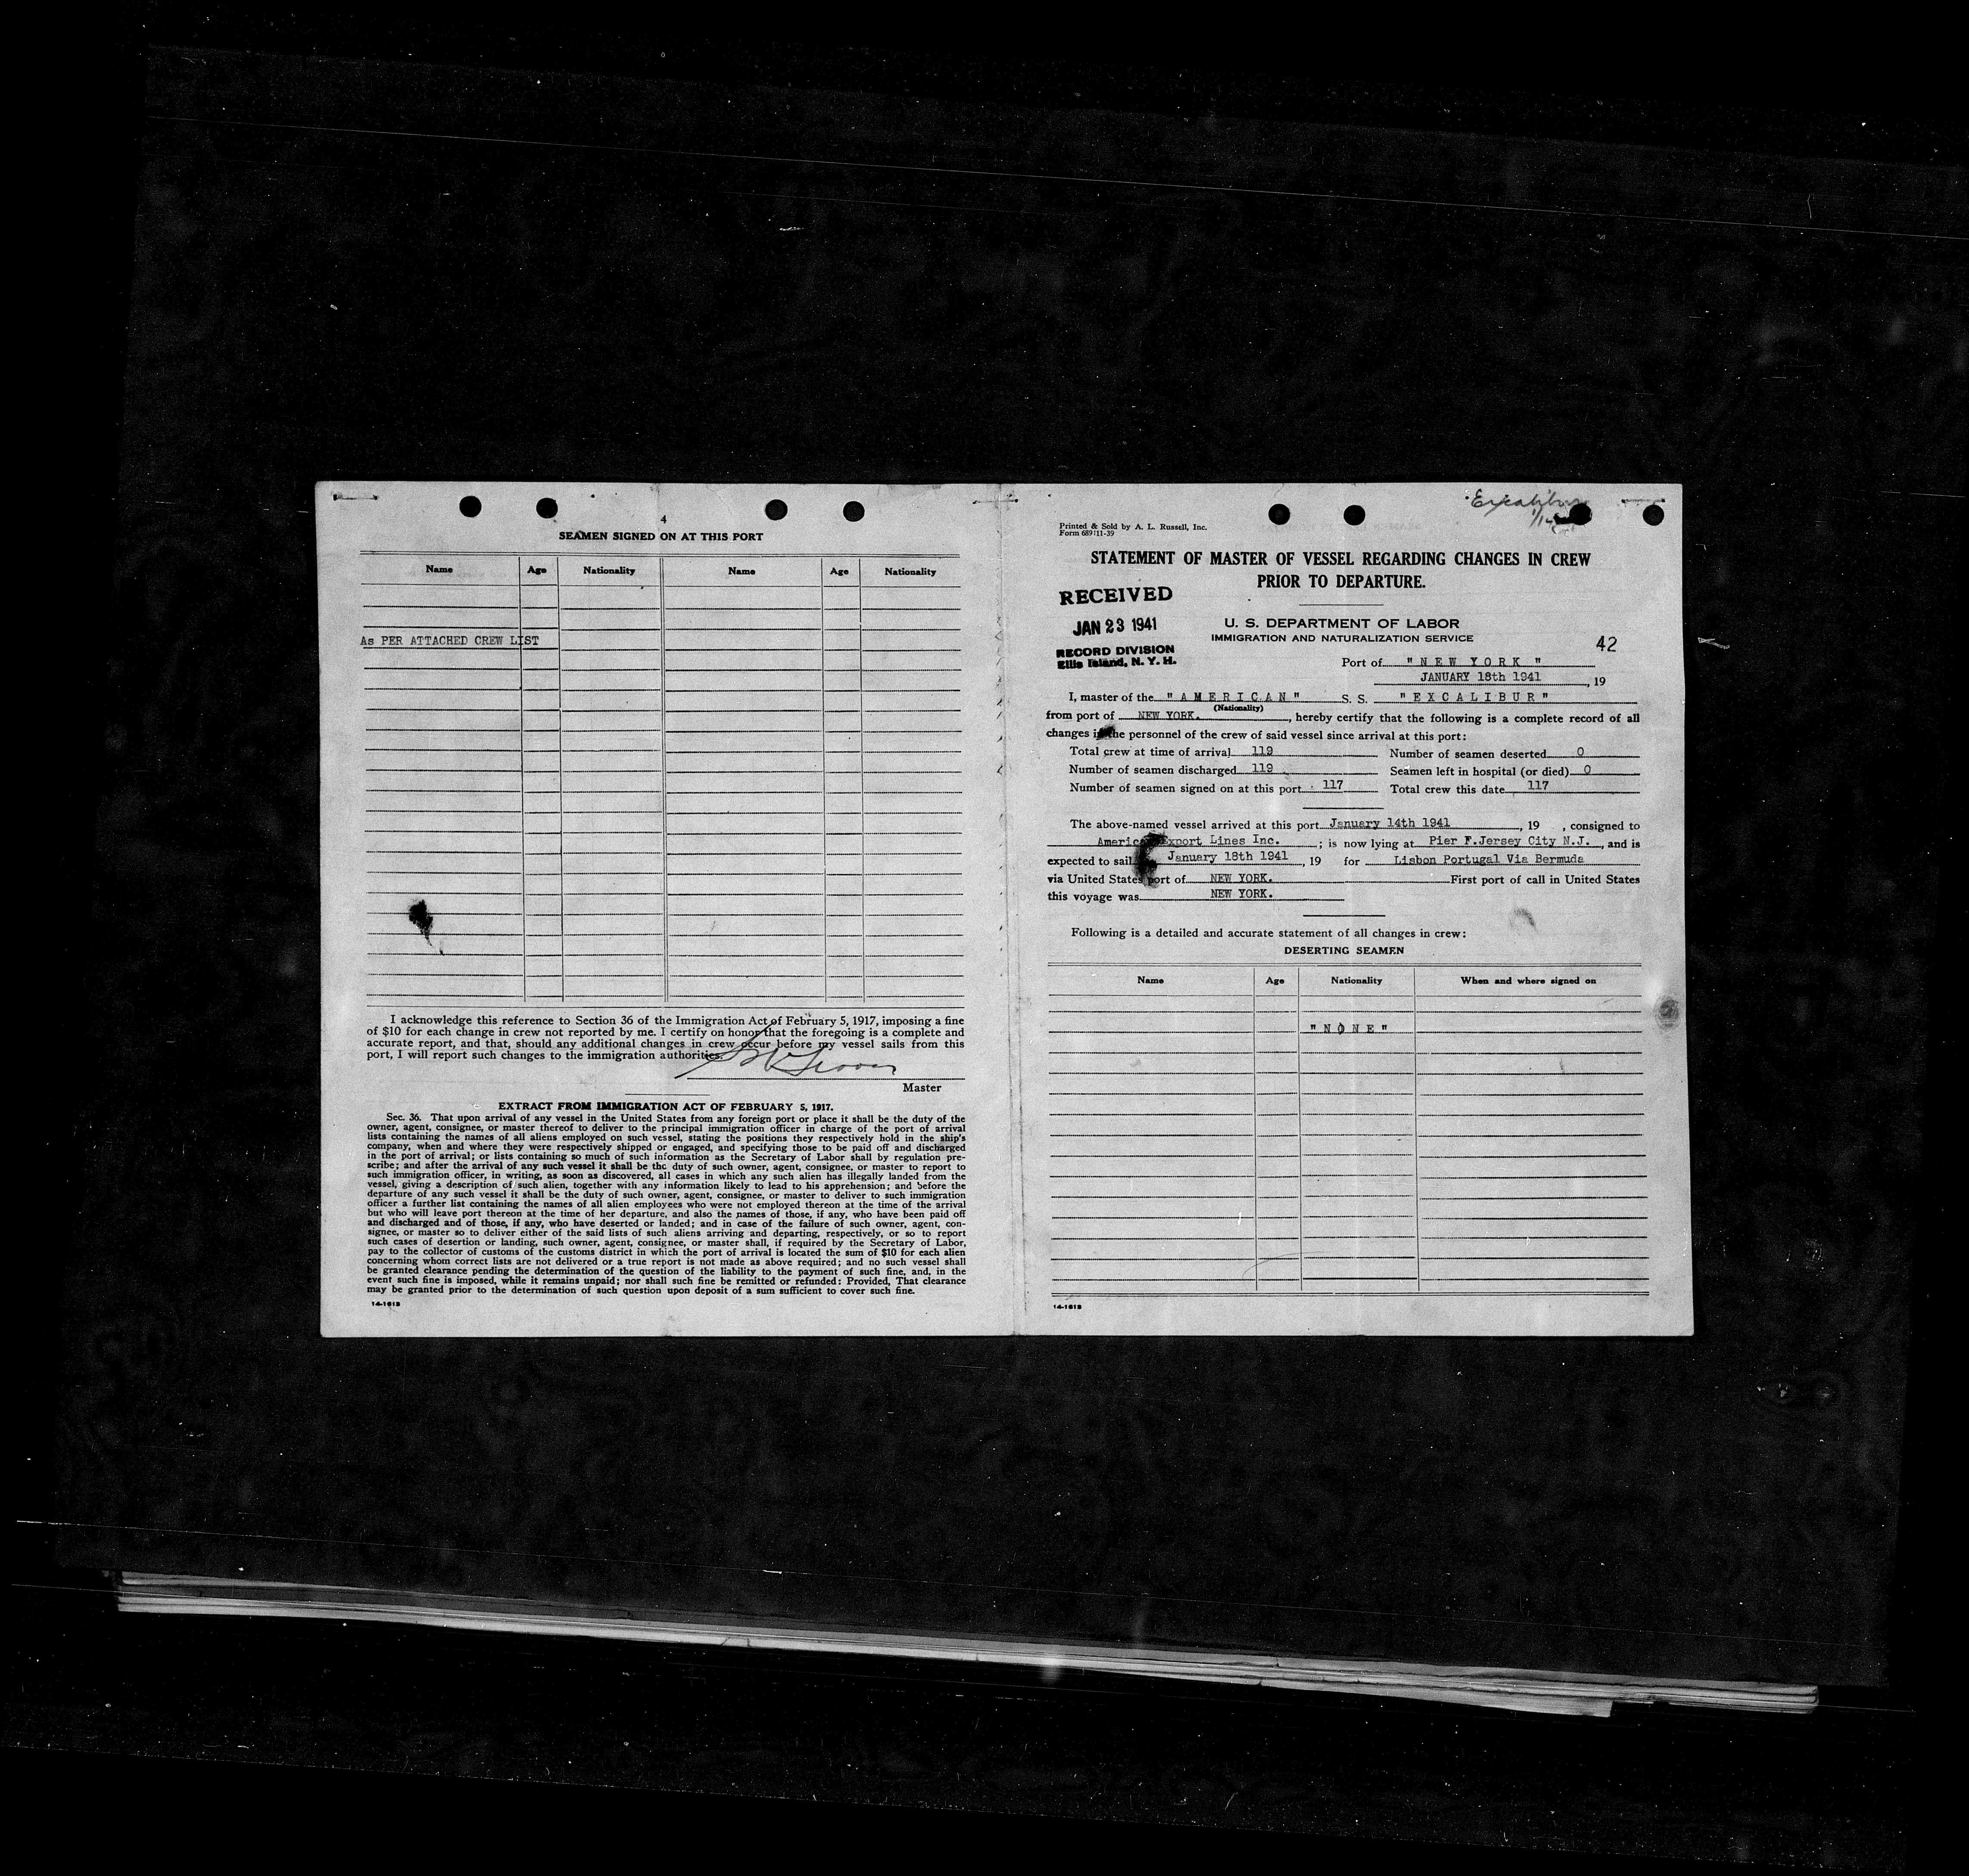 4
SEAMEN SIGNED ON AT THIS PORT
Name Age Nationality Name Age Nationality
As PER ATTACHED CREW LIST
I acknowledge this reference to Section 36 of the Immigration Act of February 5, 1917, imposing a fine
of $10 for each change in crew not reported by me. I certify on honor that the foregoing is a complete and
accurate report, and that, should any additional changes in crew occur before my vessel sails from this
port, I will report such changes to the immigration authorities.
Master
EXTRACT FROM IMMIGRATION ACT OF FEBRUARY 5, 1917.
Sec. 36. That upon arrival of any vessel in the United States from any foreign port or place it shall be the duty of the
owner, agent, consignee, or master thereof to deliver to the principal immigration officer in charge of the port of arrival
lists containing the names of all aliens employed on such vessel, stating the positions they respectively hold in the ship's
company, when and where they were respectively shipped or engaged, and specifying those to be paid off and discharged
in the port of arrival; or lists containing so much of such information as the Secretary of Labor shall by regulation pre-
scribe; and after the arrival of any such vessel it shall be the duty of such owner, agent, consignee, or master to report to
such immigration officer, in writing, as soon as discovered, all cases in which any such alien has illegally landed from the
vessel, giving a description of such alien, together with any information likely to lead to his apprehension; and before the
departure of any such vessel it shall be the duty of such owner, agent, consignee, or master to deliver to such immigration
officer a further list containing the names of all alien employees who were not employed thereon at the time of the arrival
but who will leave port thereon at the time of her departure, and also the names of those, if any, who have been paid off
and discharged and of those, if any, who have deserted or landed; and in case of the failure of such owner, agent, con-
signee, or master so to deliver either of the said lists of such aliens arriving and departing, respectively, or so to report
such cases of desertion or landing, such owner, agent, consignee, or master shall, if required by the Secretary of Labor,
pay to the collector of customs of the customs district in which the port of arrival is located the sum of $10 for each alien
concerning whom correct lists are not delivered or a true report is not made as above required; and no such vessel shall
be granted clearance pending the determination of the question of the liability to the payment of such fine, and, in the
event such fine is imposed, while it remains unpaid; nor shall such fine be remitted or refunded: Provided, That clearance
may be granted prior to the determination of such question upon deposit of a sum sufficient to cover such fine.
14-1613
Excalibur
Printed & Sold by A. L. Russell, Inc.
Form 689 11-39
STATEMENT OF MASTER OF VESSEL REGARDING CHANGES IN CREW
PRIOR TO DEPARTURE.
RECEIVED
JAN 23 1941
RECORD DIVISION
Ellis Island, N. Y. H.
U. S. DEPARTMENT OF LABOR
IMMIGRATION AND NATURALIZATION SERVICE
42
Port of "NEW YORK"
JANUARY 18th 1941, 19
I, master of the "AMERICAN" S. S. "EXCALIBUR"
(Nationality)
from port of NEW YORK., hereby certify that the following is a complete record of all
changes in the personnel of the crew of said vessel since arrival at this port:
Total crew at time of arrival 119 Number of seamen deserted 0
Number of seamen discharged 119 Seamen left in hospital (or died) 0
Number of seamen signed on at this port 117 Total crew this date 117
The above-named vessel arrived at this port January 14th 1941, 19 , consigned to
American Export Lines Inc. ; is now lying at Pier F.Jersey City N.J., and is
expected to sail January 18th 1941, 19 for Lisbon Portugal Via Bermuda
via United States port of NEW YORK. First port of call in United States
this voyage was NEW YORK.
Following is a detailed and accurate statement of all changes in crew:
DESERTING SEAMEN
Name Age Nationality When and where signed on
"NONE"
14-1613